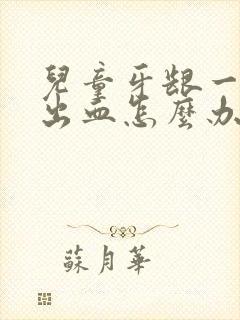 兒童牙龈一
出血怎麼办
蘇月華